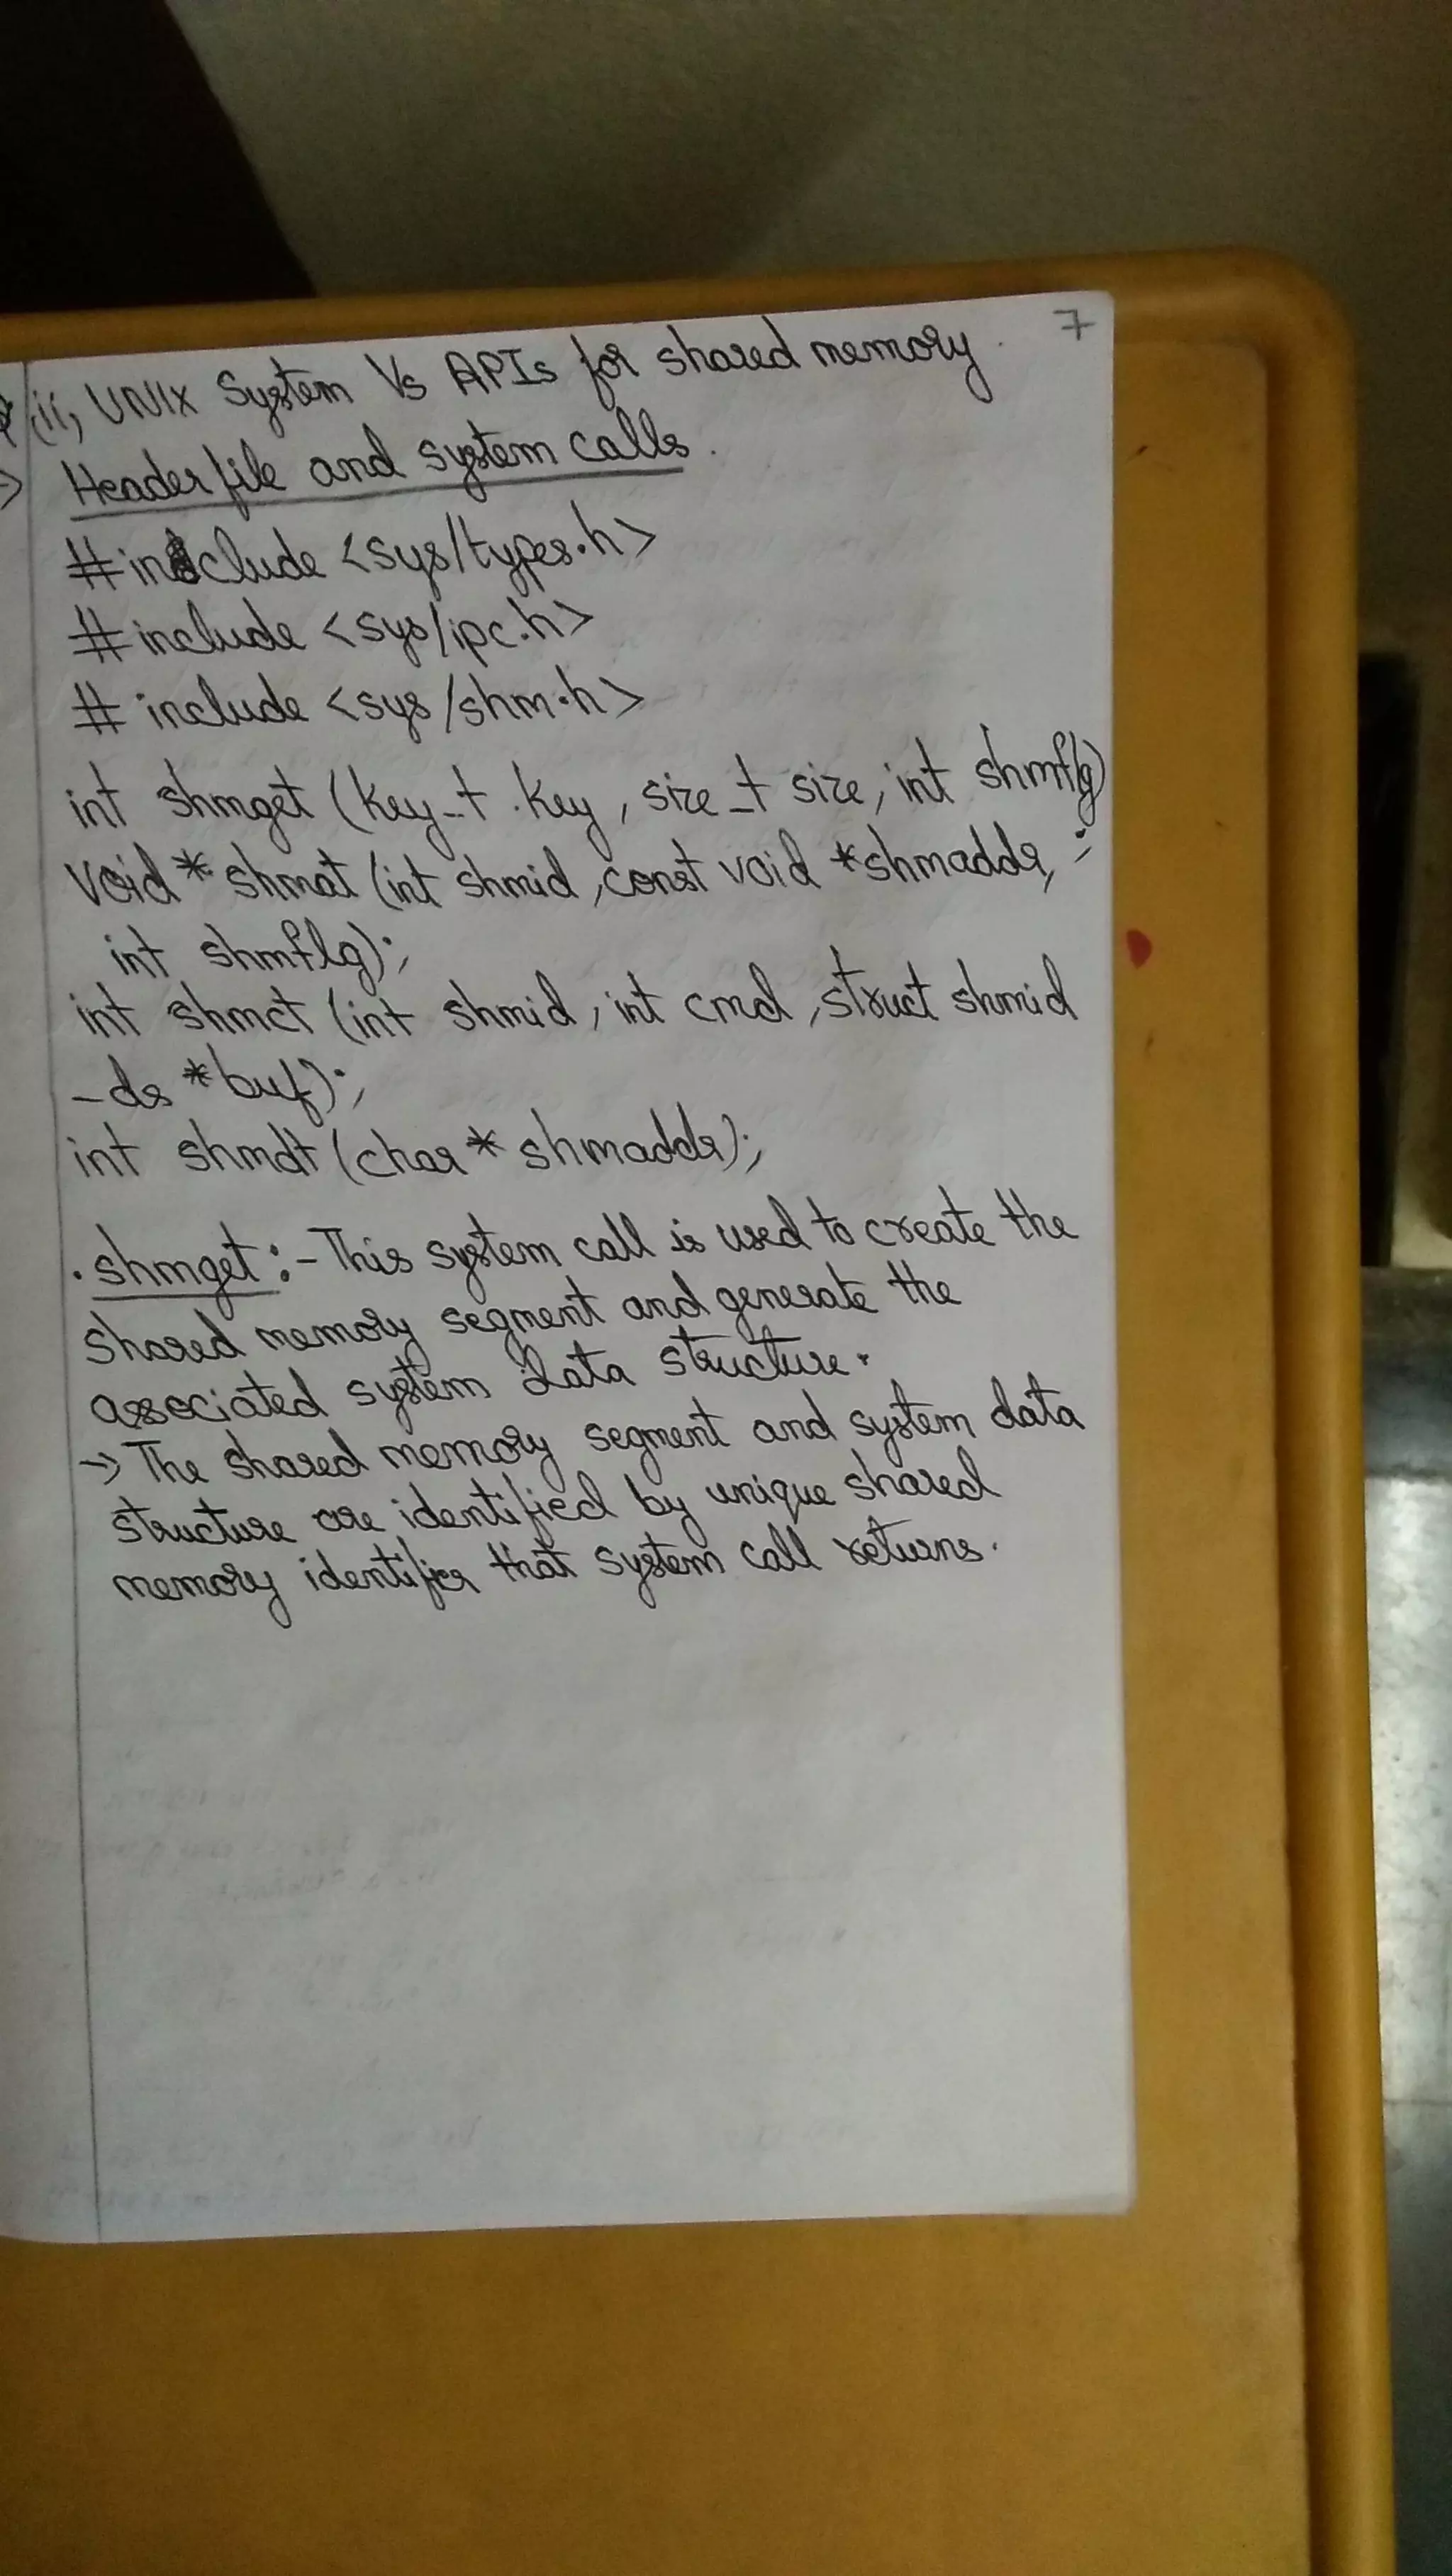 7
(ii, UNIX System Vs APIs for shared memory.
Header file and system calls.
#include <sys/types.h>
#include <sys/ipc.h>
# include <sys/shm.h>
int shmget (key_t key, size_t size, int shmflg)
void * shmat (int shmid, const void *shmaddr, ;
int shmflg);
int shmct (int shmid, int cmd, struct shmid
_ds *buf);
int shmdt (char* shmaddr);
. shmget :- This system call is used to create the
shared memory segment and generate the
associated system data structure.
→ The shared memory segment and system data
structure are identified by unique shared
memory identifier that system call returns.